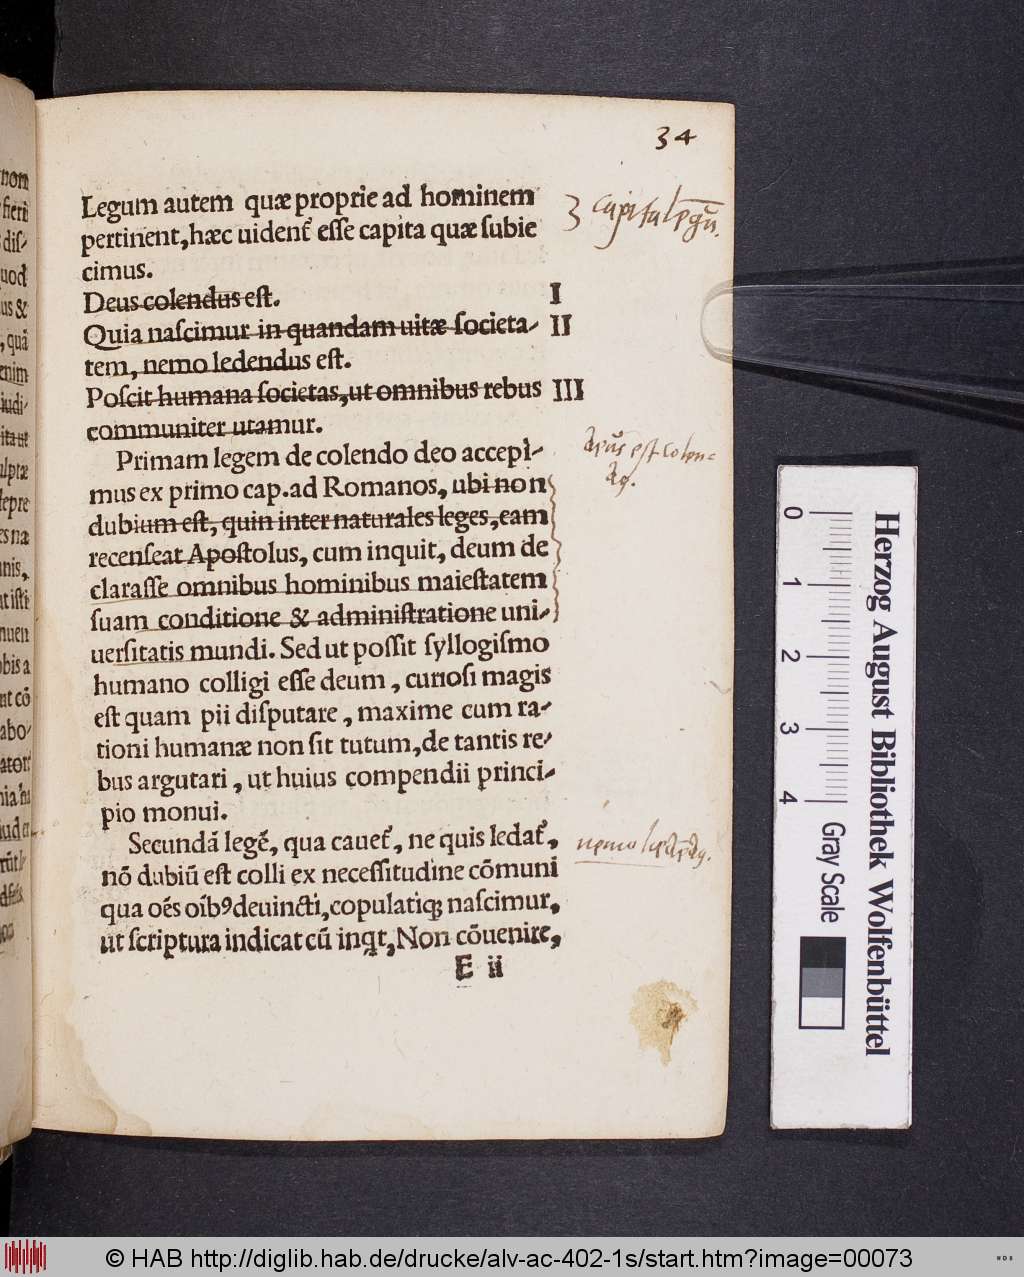 34
Legum autem quæ proprie ad hominem
pertinent, hæc uident᷑ eſſe capita quæ ſubie
cimus.
Deus colendus eſt. I
Quia naſcimur in quandam uitæ ſocieta- II
tem, nemo ledendus eſt.
Poſcit humana ſocietas, ut omnibus rebus III
communiter utamur.
Primam legem de colendo deo accepi-
mus ex primo cap. ad Romanos, ubi non
dubium eſt, quin inter naturales leges, eam
recenſeat Apoſtolus, cum inquit, deum de
claraſſe omnibus hominibus maieſtatem
ſuam conditione & adminiſtratione uni-
uerſitatis mundi. Sed ut poſſit ſyllogiſmo
humano colligi eſſe deum, curioſi magis
eſt quam pii diſputare, maxime cum ra-
tioni humanæ non ſit tutum, de tantis re-
bus argutari, ut huius compendii princi-
pio monui.
Secundā legē, qua cauet᷑, ne quis ledat᷑,
nō dubiū eſt colli ex neceſſitudine cōmuni
qua oēs oībꝰ deuincti, copulatiq; naſcimur,
ut ſcriptura indicat cū inqt, Non cōuenire,
E ii
3 capita legū.
deus est colen=
nemo
nom
fieri
diſ-
uod
us &
, quā
enim
iudi-
ita ut
ulptæ
es na
nis,
nuen
obis a
nt cō
abo-
Herzog August Bibliothek Wolfenbüttel
0 1 2 3 4
Gray Scale
© HAB http://diglib.hab.de/drucke/alv-ac-402-1s/start.htm?image=00073